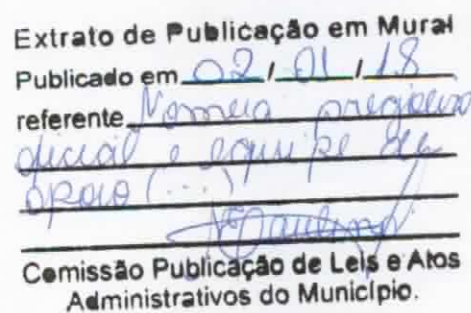 Extrato de Publicação em Mural
Publicado em 02 / 01 / 18
referente Nomeia pregoeiro
oficial e equipe de
apoio (...)
Comissão Publicação de Leis e Atos
Administrativos do Município.